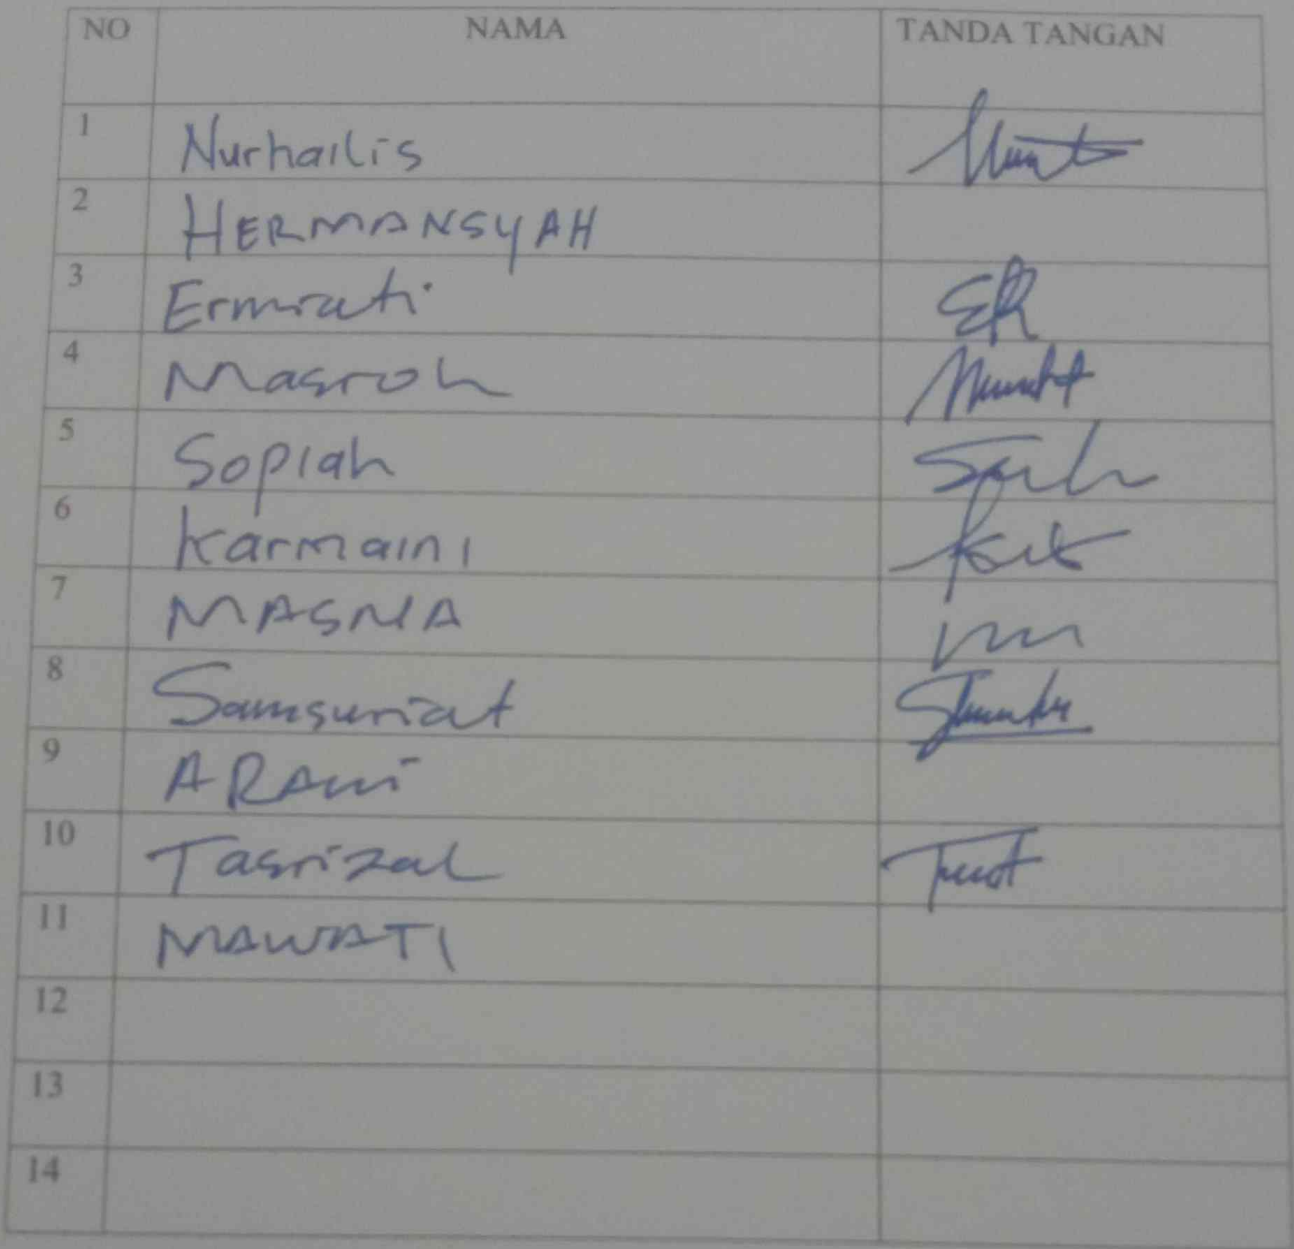 NO NAMA TANDA TANGAN
1 Nurhailis
2 HERMANSYAH
3 Ermiati
4 Masroh
5 Sopiah
6 Karmaini
7 MASNA
8 Samsuriat
9
10 Tasrizal
11 MAWATI
12
13
14